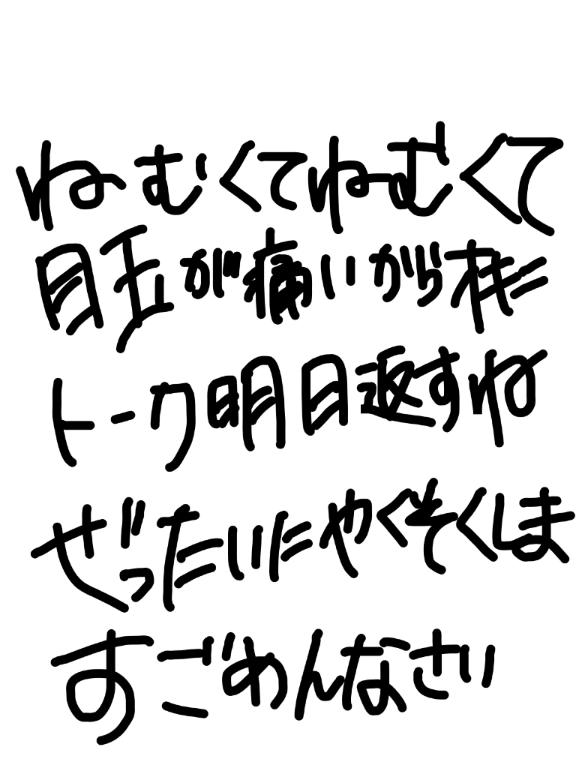 ねむくてねむくて
目玉が痛いから
トーク明日返すね
ぜったいにやくそくしま
すごめんなさい